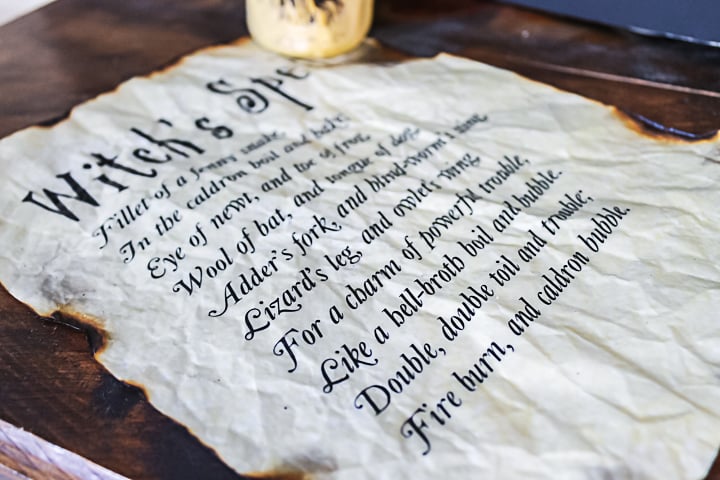 Witch's Spe
Fillet of a fenny snake
In the caldron boil and bake;
Eye of newt, and toe of frog,
Wool of bat, and tongue of dog,
Adder's fork, and blind-worm's sting
Lizard's leg, and owlet's wing
For a charm of powerful trouble,
Like a hell-broth boil and bubble.
Double, double toil and trouble;
Fire burn, and caldron bubble.